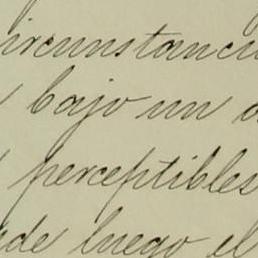 ircunstanci
bajo un
perceptibles
de luego el